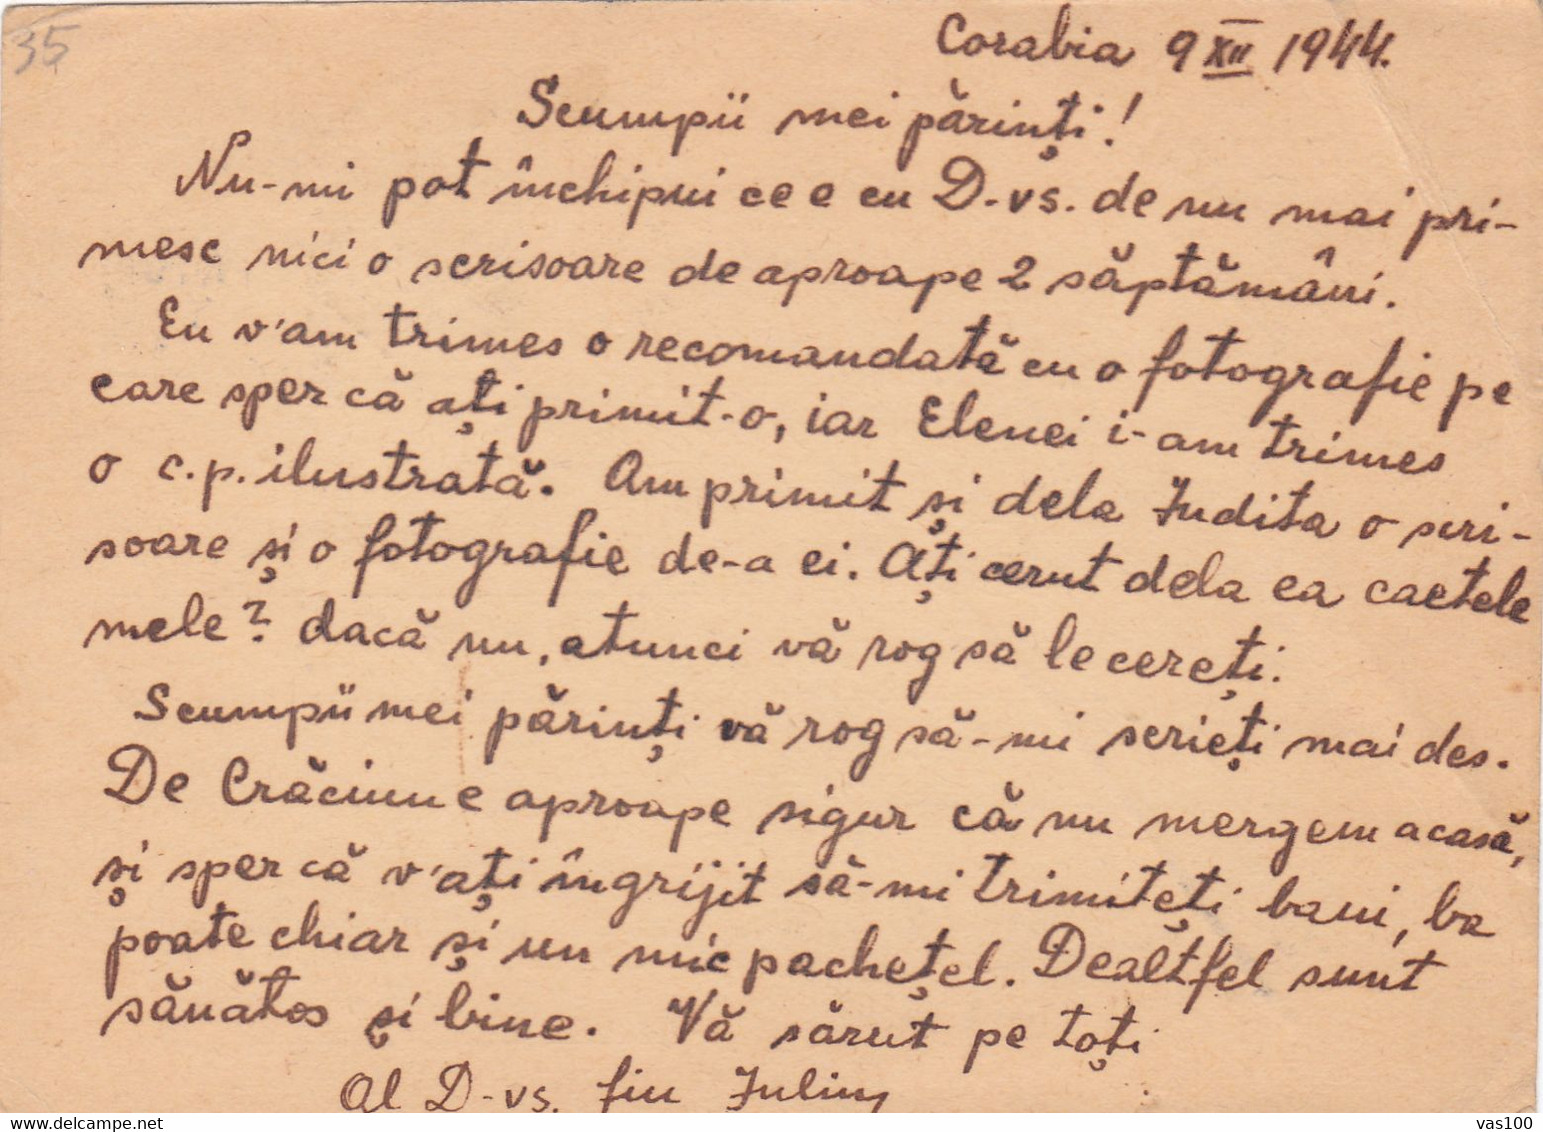 35
Corabia 9 XII 1944.
Scumpii mei părinți!
Nu-mi pot închipui ce e cu D-vs. de nu mai pri-
mesc nici o scrisoare de aproape 2 săptămâni.
Eu v'am trimes o recomandată cu o fotografie pe
care sper că ați primit-o, iar Elenei i-am trimes
o c.p. ilustrată. Am primit și dela Judita o scri-
soare și o fotografie de-a ei. Ați cerut dela ea caetele
mele? dacă nu, atunci vă rog să le cereți.
Scumpii mei părinți vă rog să-mi scrieți mai des.
De Crăciun e aproape sigur că nu mergem acasă,
și sper că v'ați îngrijit să-mi trimiteți bani, ba
poate chiar și un mic pachețel. Dealtfel sunt
sănătos și bine. Vă sărut pe toți
Al D-vs. fiu Juliu
delcampe.net
vas100